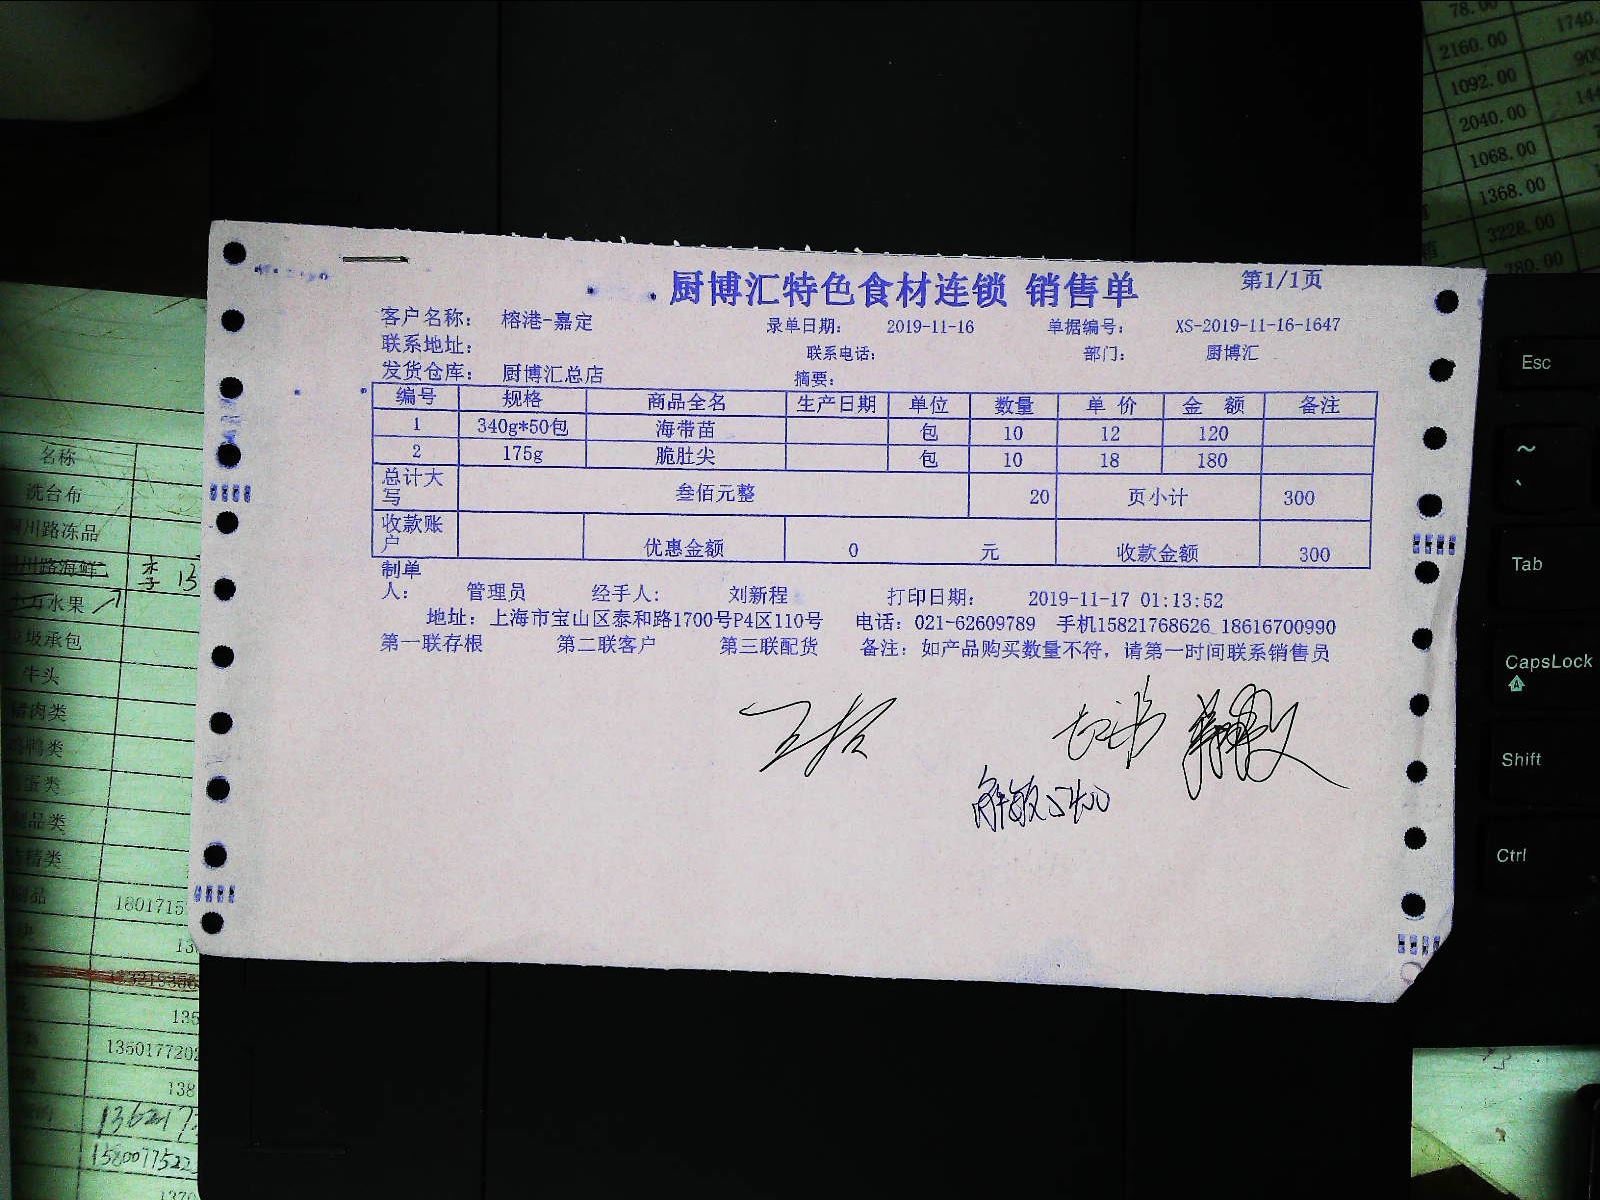 厨博汇特色食材连锁 销售单 第1/1页
客户名称： 榕港-嘉定 录单日期： 2019-11-16 单据编号： XS-2019-11-16-1647
联系地址： 联系电话： 部门： 厨博汇
发货仓库： 厨博汇总店 摘要：
编号 规格 商品全名 生产日期 单位 数量 单 价 金 额 备注
1 340g*50包 海带苗 包 10 12 120
2 175g 脆肚尖 包 10 18 180
总计大写 叁佰元整 20 页小计 300
收款账户 优惠金额 0 元 收款金额 300
制单人： 管理员 经手人： 刘新程 打印日期： 2019-11-17 01:13:52
地址：上海市宝山区泰和路1700号P4区110号 电话：021-62609789 手机15821768626 18616700990
第一联存根 第二联客户 第三联配货 备注：如产品购买数量不符，请第一时间联系销售员
名称
洗台布
川路冻品
川路海鲜
水果
圾承包
牛头
猪肉类
鸭类
蛋类
品类
精类
品
1801715
13
135
1350177202
138
1362173
1580077522
1370
78.00 1740.
2160.00 900
1092.00 144
2040.00
1068.00
1368.00
3228.00
780.00
Esc
~
`
Tab
CapsLock
A
Shift
Ctrl